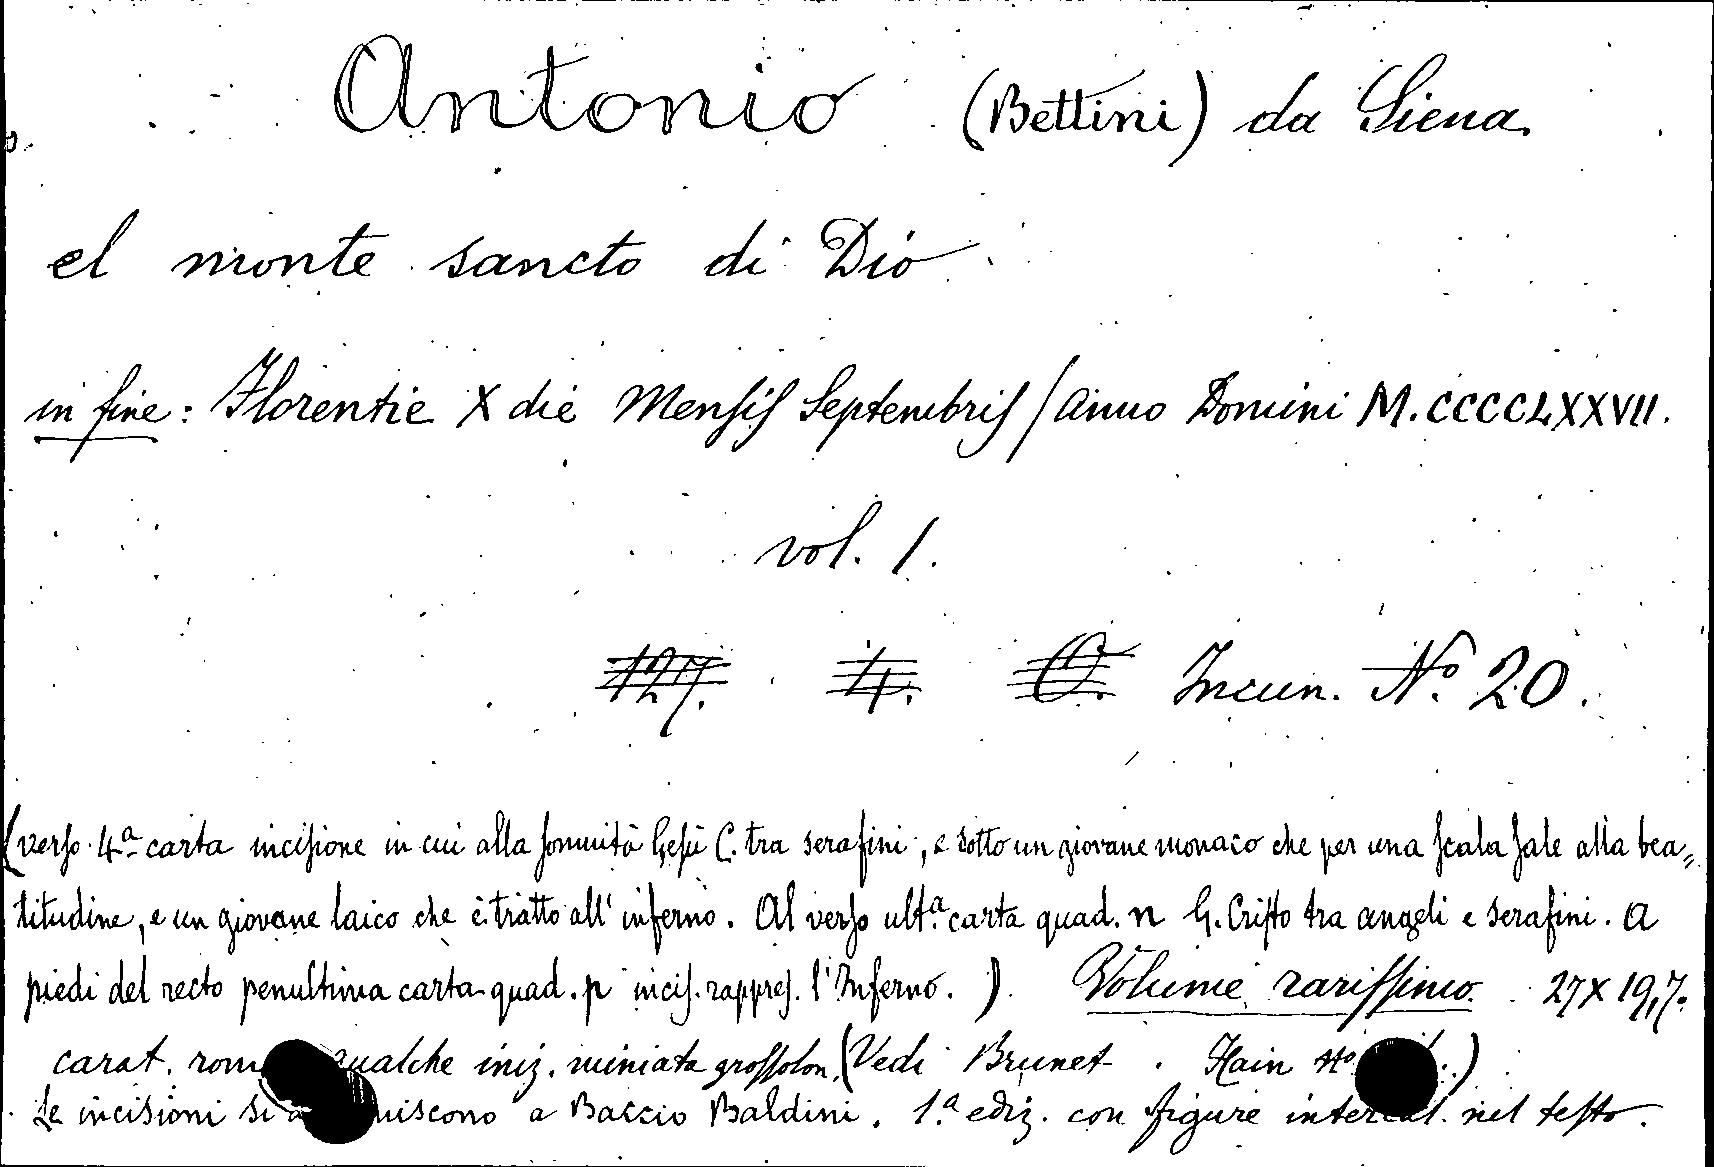 Antonio (Bettini) da Siena.
el monte sancto di Dio
in fine: Florentie X die Mensis Septembris / Anno Domini M.CCCCLXXVII.
vol. 1.
127. 4. C. Incun. Nº 20.
(verso 4ª carta incisione in cui alla sommità Gesù C. tra serafini, e sotto un giovane monaco che per una scala sale alla bea=
titudine, e un giovane laico che è tratto all'inferno. Al verso ultª carta quad. n G. Cristo tra angeli e serafini. A
piedi del recto penultima carta quad. p incis. rappres. l'Inferno.) Volume rarissimo. 27 x 19,7.
carat. rom qualche iniz. miniata grossolon. (Vedi Brunet. Hain Nº )
Le incisioni si a uiscono a Baccio Baldini. 1ª ediz. con figure intercal. nel testo.